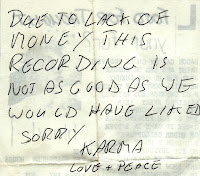 DUE TO LACK OF
MONEY THIS
RECORDING IS
NOT AS GOOD AS WE
WOULD HAVE LIKED
SORRY
KARMA
LOVE + PEACE